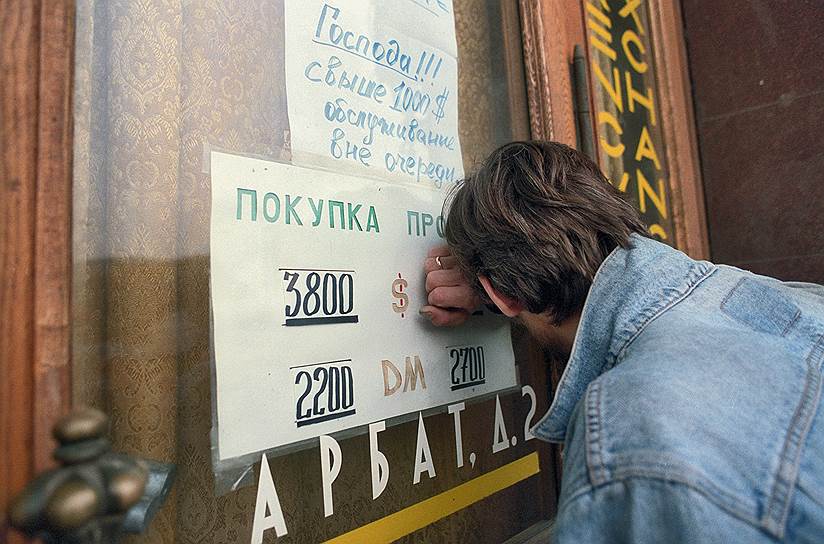 Господа!!!
свыше 1000$
обслуживание
вне очереди.
ПОКУПКА
3800 $
2200 DM 2700
АРБАТ, Д. 2